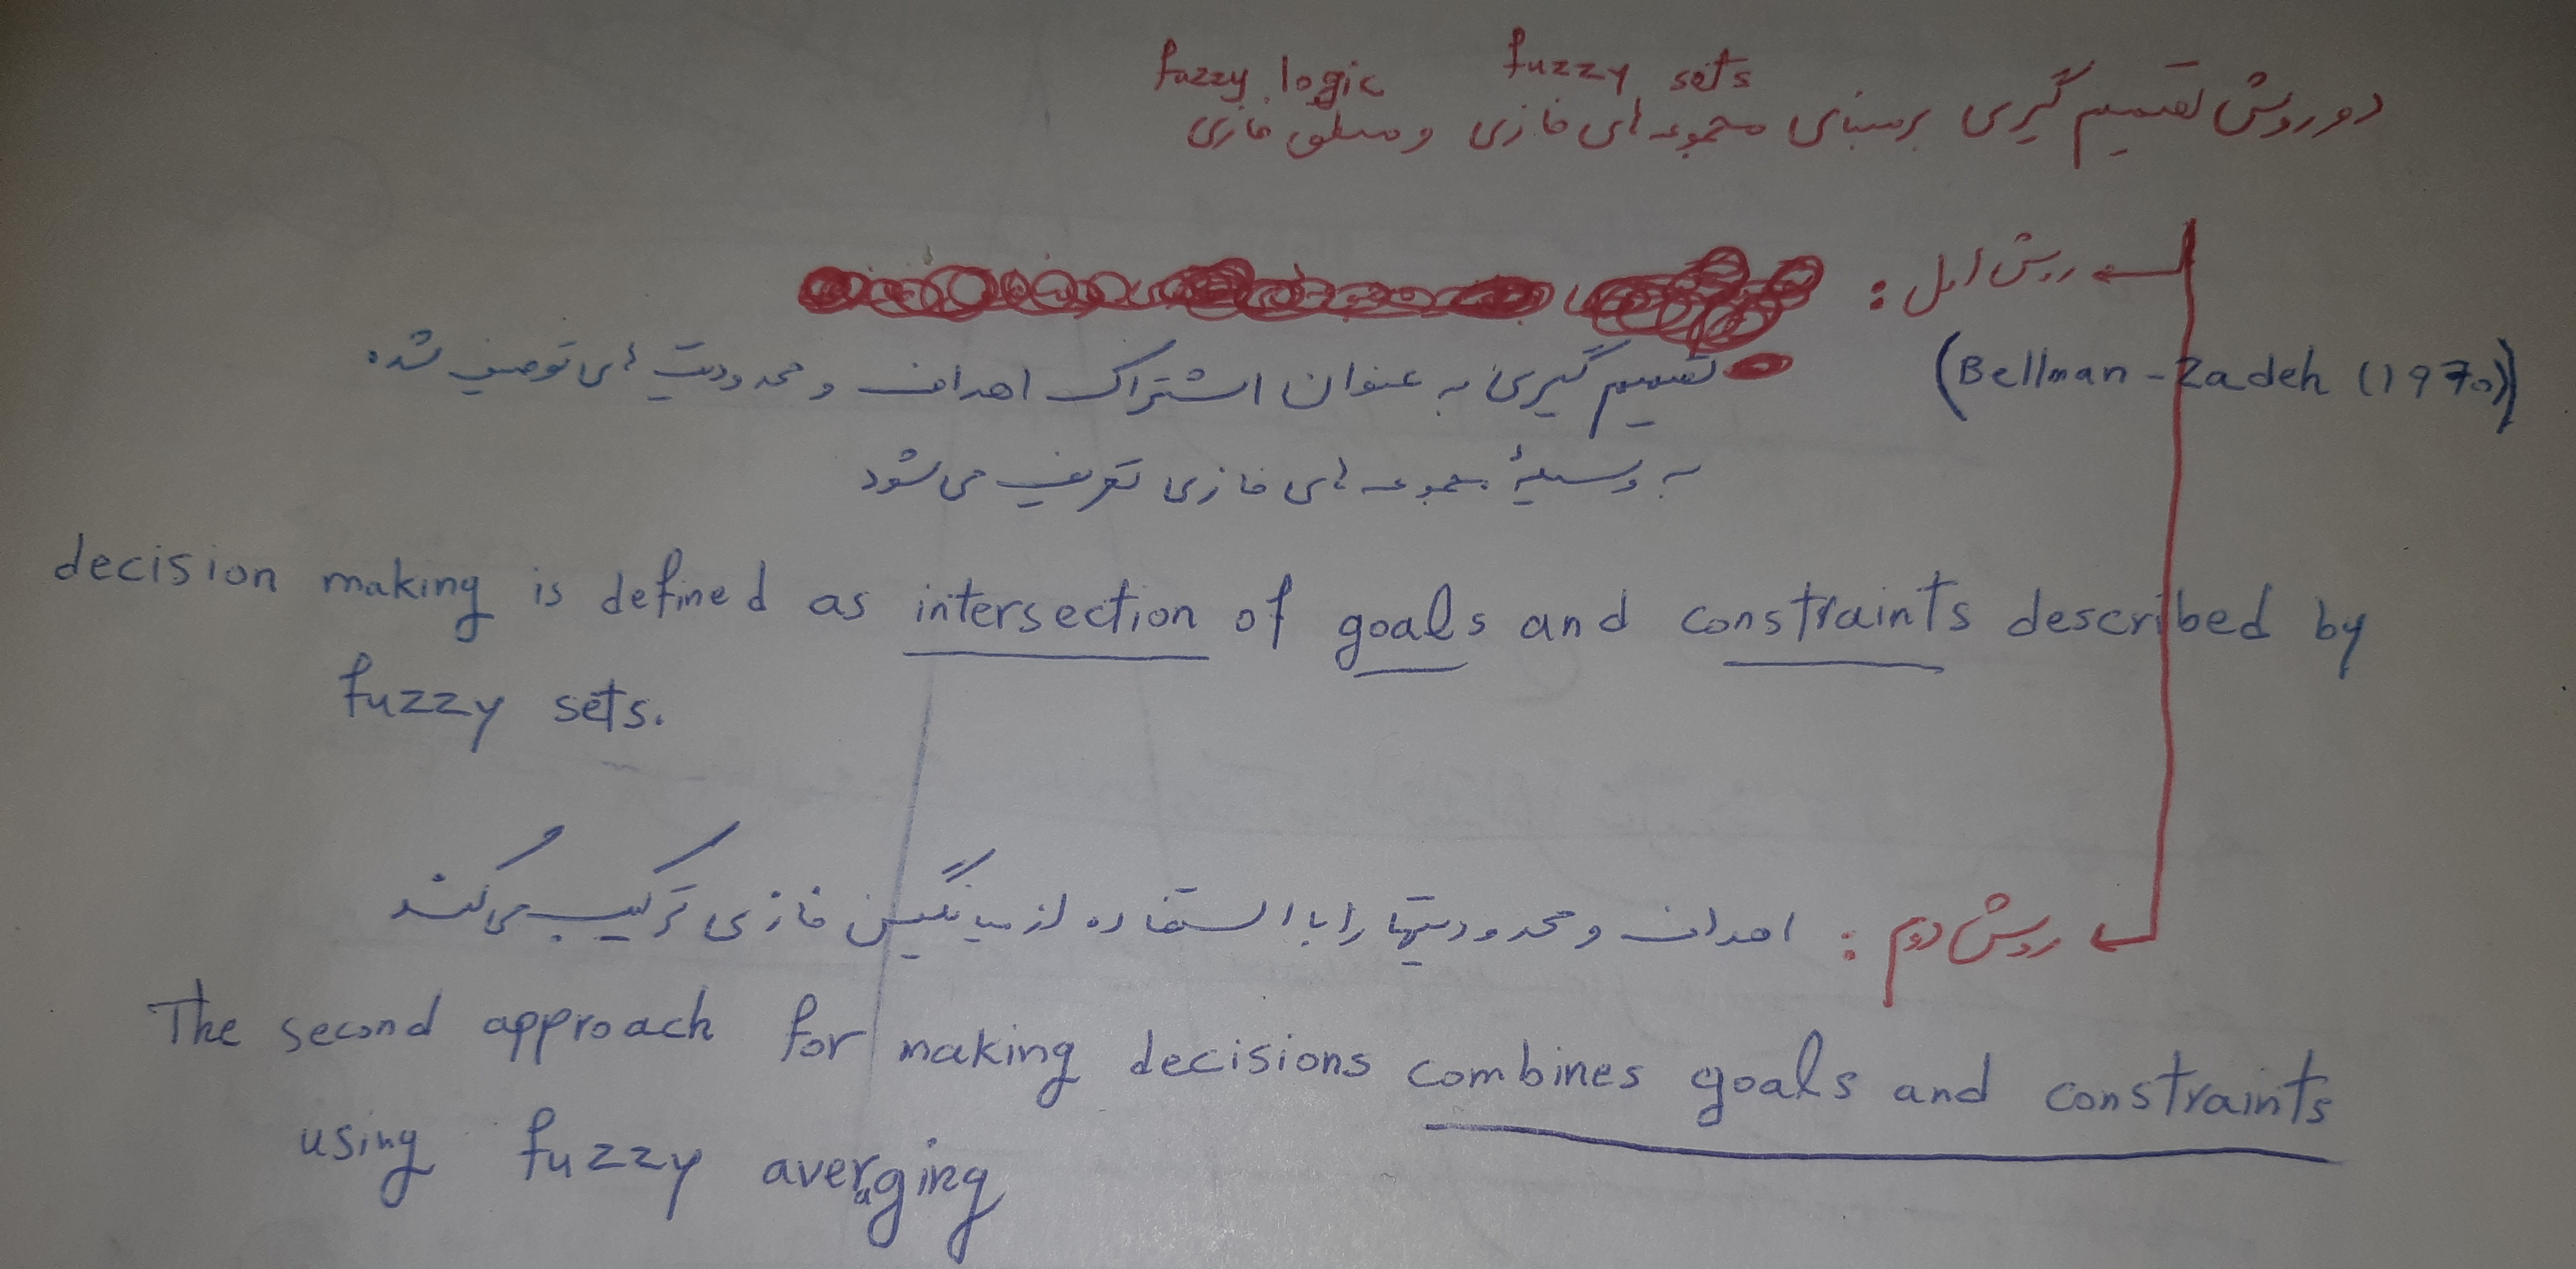 fuzzy logic fuzzy sets
دو روش تصمیم گیری بر مبنای مجموعه های فازی و منطق فازی
روش اول :
(Bellman - Zadeh (1970))
تصمیم گیری به عنوان اشتراک اهداف و محدودیت های توصیف شده
به وسیلهٔ مجموعه های فازی تعریف می شود
decision making is defined as intersection of goals and constraints described by
fuzzy sets.
روش دوم : اهداف و محدودیتها را با استفاده از میانگین فازی ترکیب می کند
The second approach for making decisions combines goals and constraints
using fuzzy averaging